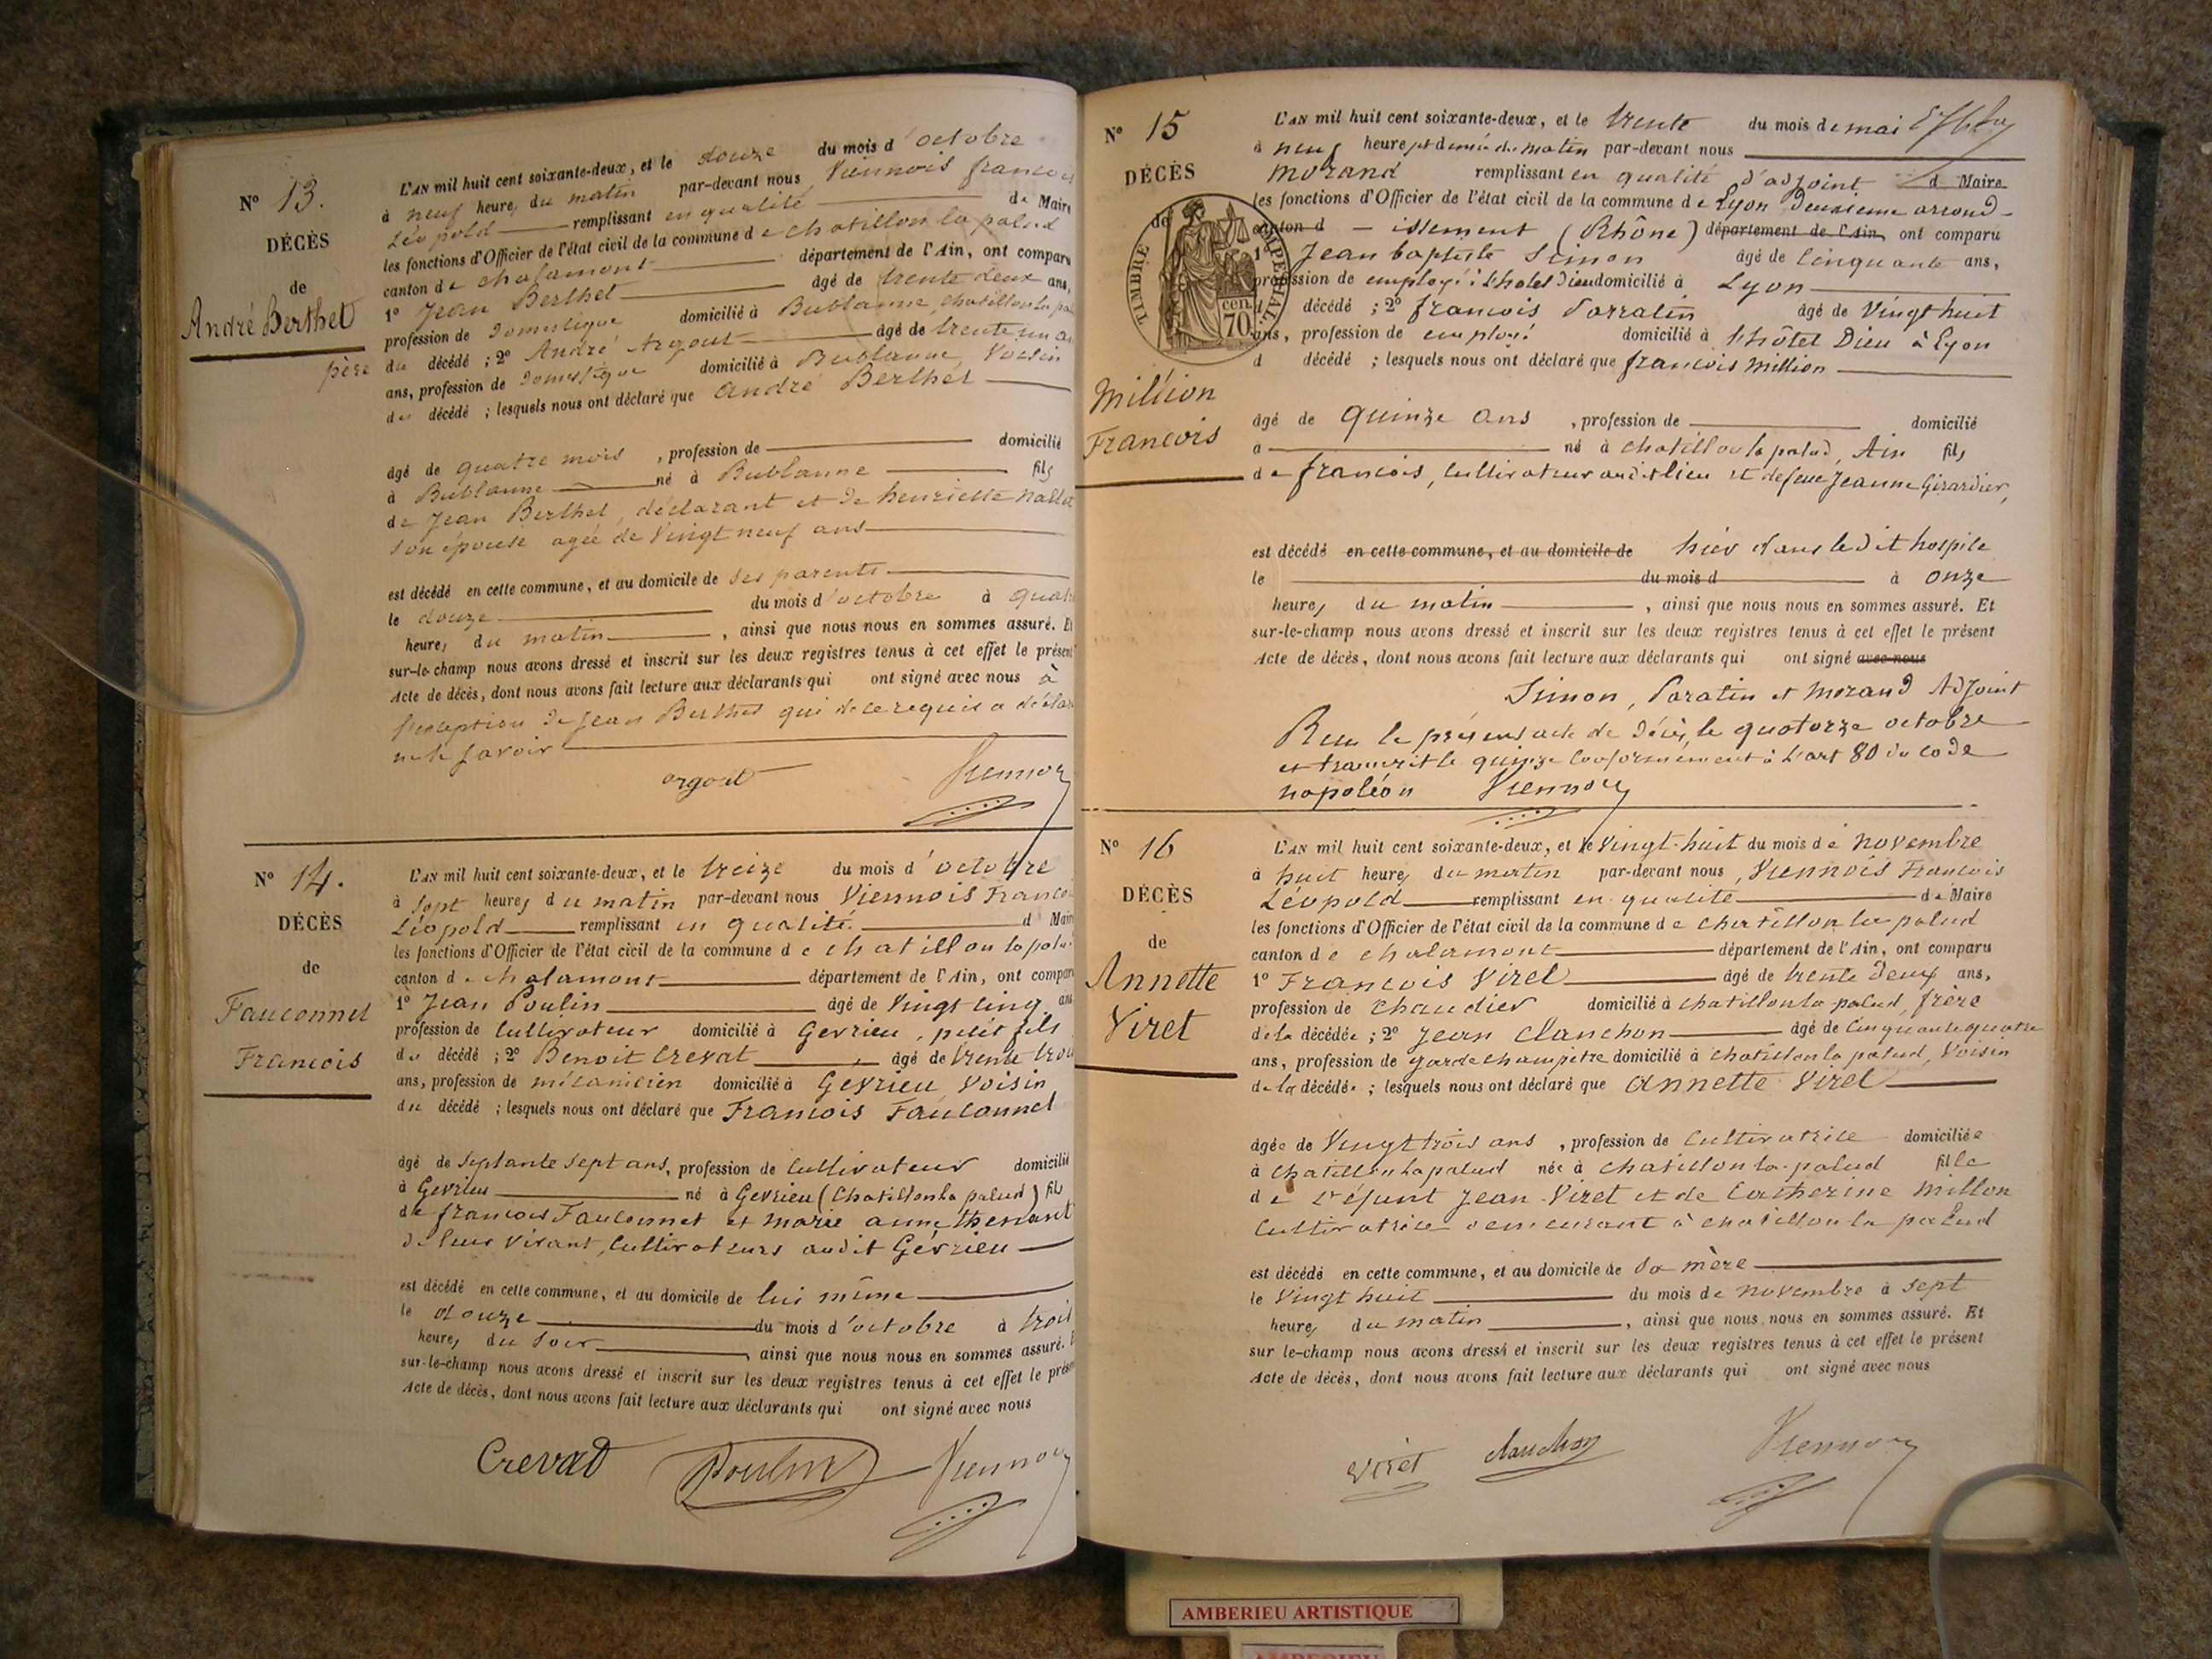 N° 13.
DÉCÈS
de
André Berthet
L'AN mil huit cent soixante-deux, et le douze du mois d'octobre
à neuf heures du matin par-devant nous Viennois francois
Léopold remplissant en qualité de Maire
les fonctions d'Officier de l'état civil de la commune de chatillon la palud
canton de chalamont département de l'Ain, ont comparu
1° Jean Berthet âgé de trente deux ans,
profession de domestique domicilié à Bublanne, chatillon la
père du décédé ; 2° André Argout âgé de trente un
ans, profession de domestique domicilié à Bublanne, Voisin
du décédé ; lesquels nous ont déclaré que André Berthet
âgé de quatre mois , profession de domicilié
à Bublanne né à Bublanne fils
de Jean Berthet, déclarant et de henriette
son épouse agée de Vingt neuf ans
est décédé en cette commune, et au domicile de ses parents
le douze du mois d'octobre à
heures du matin , ainsi que nous nous en sommes assuré. Et
sur-le-champ nous avons dressé et inscrit sur les deux registres tenus à cet effet le présent
Acte de décès, dont nous avons fait lecture aux déclarants qui ont signé avec nous à
l'exception de Jean Berthet qui de ce requis a
ne le savoir
argout Viennois
N° 14.
DÉCÈS
de
Fauconnet
Francois
L'AN mil huit cent soixante-deux, et le treize du mois d'octobre
à sept heures du matin par-devant nous Viennois
Léopold remplissant en qualité d Maire
les fonctions d'Officier de l'état civil de la commune de chatillon la
canton de chalamont département de l'Ain, ont comparu
1° Jean Poulin âgé de Vingt cinq ans
profession de cultivateur domicilié à Gevrieu, petit fils
du décédé ; 2° Benoit Crevat âgé de trente trois
ans, profession de mécanicien domicilié à Gévrieu Voisin
du décédé ; lesquels nous ont déclaré que Francois Fauconnet
âgé de septante sept ans, profession de cultivateur domicilié
à Gevrieu né à Gevrieu (Chatillon la palud) fils
de francois Fauconnet et marie anne thenant
de leur vivant, cultivateurs audit Gévrieu
est décédé en cette commune, et au domicile de lui même
le douze du mois d'octobre à trois
heures du soir , ainsi que nous nous en sommes assuré.
sur-le-champ nous avons dressé et inscrit sur les deux registres tenus à cet effet le
Acte de décès, dont nous avons fait lecture aux déclarants qui ont signé avec nous
Crevat Poulin Viennois
N° 15
DÉCÈS
de
TIMBRE IMPÉRIAL
70 cen
Million
Francois
L'AN mil huit cent soixante-deux, et le trente du mois de mai
à neuf heures et demie du matin par-devant nous
Morand remplissant en qualité d'adjoint d Maire
les fonctions d'Officier de l'état civil de la commune de Lyon deuxieme arrond-
canton d - issement (Rhône) département de l'Ain, ont comparu
1° Jean baptiste Simon âgé de Cinquante ans,
profession de employé à l'hotel Dieu domicilié à Lyon
d décédé ; 2° francois Parratin âgé de Vingt huit
ans, profession de employé domicilié à l'hôtel Dieu à Lyon
d décédé ; lesquels nous ont déclaré que francois million
âgé de quinze ans , profession de domicilié
a né à chatillon la palud, Ain fils
de francois, cultivateur audit lieu et de feue Jeanne Girardier,
est décédé en cette commune, et au domicile de hier dans le dit hospice
le du mois d à onze
heures du matin , ainsi que nous nous en sommes assuré. Et
sur-le-champ nous avons dressé et inscrit sur les deux registres tenus à cet effet le présent
Acte de décès, dont nous avons fait lecture aux déclarants qui ont signé avec nous
Simon, Paratin et morand Adjoint
Recu le présent acte de décès le quatorze octobre
et transcrit le quinze conformement à l'art 80 du code
napoléon Viennois
N° 16
DÉCÈS
de
Annette
Viret
L'AN mil huit cent soixante-deux, et le Vingt-huit du mois de novembre
à huit heures du matin par-devant nous, Viennois Francois
Léopold remplissant en qualité de Maire
les fonctions d'Officier de l'état civil de la commune de chatillon la palud
canton de chalamont département de l'Ain, ont comparu
1° Francois Viret âgé de trente deux ans,
profession de Chaudier domicilié à chatillon la palud, frère
de la décédée ; 2° Jean Clanchon âgé de Cinquante quatre
ans, profession de garde champêtre domicilié à chatillon la palud, Voisin
de la décédée ; lesquels nous ont déclaré que Annette Viret
âgée de Vingt trois ans , profession de Cultivatrice domiciliée
à Chatillon la palud née à chatillon la-palud fille
de défunt Jean-Viret et de Catherine Millon
Cultivatrice demeurant à chatillon la palud
est décédé en cette commune, et au domicile de sa mère
le Vingt huit du mois de novembre à sept
heures du matin , ainsi que nous nous en sommes assuré. Et
sur le-champ nous avons dressé et inscrit sur les deux registres tenus à cet effet le présent
Acte de décès, dont nous avons fait lecture aux déclarants qui ont signé avec nous
Viret clanchon Viennois
AMBERIEU ARTISTIQUE
AMBERIEU